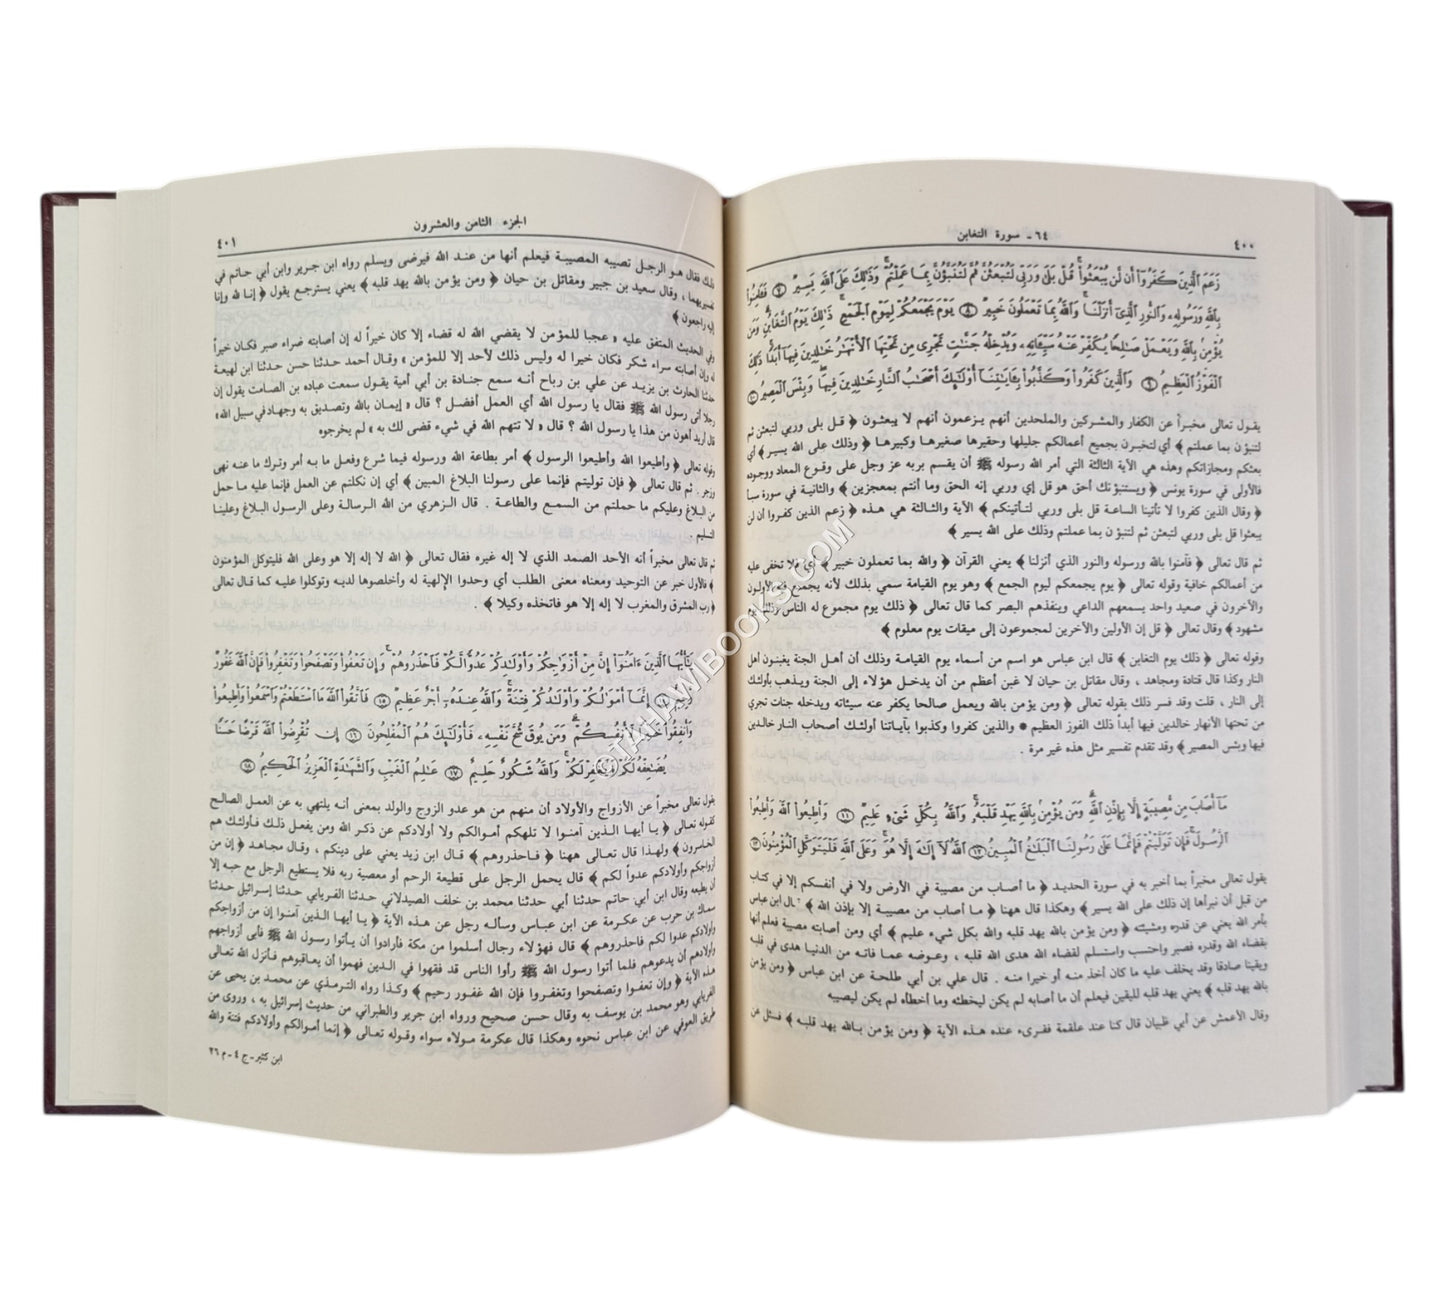 ٤٠٠
٦٤ - سورة التغابن
زَعَمَ الَّذِينَ كَفَرُوٓا۟ أَن لَّن يُبْعَثُوا۟ۚ قُلْ بَلَىٰ وَرَبِّى لَتُبْعَثُنَّ ثُمَّ لَتُنَبَّؤُنَّ بِمَا عَمِلْتُمْۚ وَذَٰلِكَ عَلَى ٱللَّهِ يَسِيرٌ ﴿٧﴾ فَـَٔامِنُوا۟
بِٱللَّهِ وَرَسُولِهِۦ وَٱلنُّورِ ٱلَّذِىٓ أَنزَلْنَاۚ وَٱللَّهُ بِمَا تَعْمَلُونَ خَبِيرٌ ﴿٨﴾ يَوْمَ يَجْمَعُكُمْ لِيَوْمِ ٱلْجَمْعِۖ ذَٰلِكَ يَوْمُ ٱلتَّغَابُنِۗ وَمَن
يُؤْمِنۢ بِٱللَّهِ وَيَعْمَلْ صَٰلِحًا يُكَفِّرْ عَنْهُ سَيِّـَٔاتِهِۦ وَيُدْخِلْهُ جَنَّٰتٍ تَجْرِى مِن تَحْتِهَا ٱلْأَنْهَٰرُ خَٰلِدِينَ فِيهَآ أَبَدًاۚ ذَٰلِكَ
ٱلْفَوْزُ ٱلْعَظِيمُ ﴿٩﴾ وَٱلَّذِينَ كَفَرُوا۟ وَكَذَّبُوا۟ بِـَٔايَٰتِنَآ أُو۟لَٰٓئِكَ أَصْحَٰبُ ٱلنَّارِ خَٰلِدِينَ فِيهَاۖ وَبِئْسَ ٱلْمَصِيرُ ﴿١٠﴾
يقول تعالى مخبراً عن الكفار والمشركين والملحدين أنهم يزعمون أنهم لا يبعثون ﴿ قل بلى وربي لتبعثن ثم
لتنبؤن بما عملتم ﴾ أي لتخبرن بجميع أعمالكم جليلها وحقيرها صغيرها وكبيرها ﴿ وذلك على الله يسير ﴾ أي
بعثكم ومجازاتكم وهذه هي الآية الثالثة التي أمر الله رسوله ﷺ أن يقسم بربه عز وجل على وقوع المعاد ووجوده
فالأولى في سورة يونس ﴿ ويستنبؤنك أحق هو قل إي وربي إنه الحق وما أنتم بمعجزين ﴾ والثانية في سورة سبأ
﴿ وقال الذين كفروا لا تأتينا الساعة قل بلى وربي لتأتينكم ﴾ الآية والثالثة هي هذه ﴿ زعم الذين كفروا أن لن
يبعثوا قل بلى وربي لتبعثن ثم لتنبؤن بما عملتم وذلك على الله يسير ﴾
ثم قال تعالى ﴿ فآمنوا بالله ورسوله والنور الذي أنزلنا ﴾ يعني القرآن ﴿ والله بما تعملون خبير ﴾ أي فلا تخفى عليه
من أعمالكم خافية وقوله تعالى ﴿ يوم يجمعكم ليوم الجمع ﴾ وهو يوم القيامة سمي بذلك لأنه يجمع فيه الأولون
والآخرون في صعيد واحد يسمعهم الداعي وينفذهم البصر كما قال تعالى ﴿ ذلك يوم مجموع له الناس وذلك يوم
مشهود ﴾ وقال تعالى ﴿ قل إن الأولين والآخرين لمجموعون إلى ميقات يوم معلوم ﴾
وقوله تعالى ﴿ ذلك يوم التغابن ﴾ قال ابن عباس هو اسم من أسماء يوم القيامة وذلك أن أهل الجنة يغبنون أهل
النار وكذا قال قتادة ومجاهد ، وقال مقاتل بن حيان لا غبن أعظم من أن يدخل هؤلاء إلى الجنة ويذهب بأولئك
إلى النار ، قلت وقد فسر ذلك بقوله تعالى ﴿ ومن يؤمن بالله ويعمل صالحا يكفر عنه سيئاته ويدخله جنات تجري
من تحتها الأنهار خالدين فيها أبداً ذلك الفوز العظيم * والذين كفروا وكذبوا بآياتنا أولئك أصحاب النار خالدين
فيها وبئس المصير ﴾ وقد تقدم تفسير مثل هذه غير مرة .
مَآ أَصَابَ مِن مُّصِيبَةٍ إِلَّا بِإِذْنِ ٱللَّهِۗ وَمَن يُؤْمِنۢ بِٱللَّهِ يَهْدِ قَلْبَهُۥۚ وَٱللَّهُ بِكُلِّ شَىْءٍ عَلِيمٌ ﴿١١﴾ وَأَطِيعُوا۟ ٱللَّهَ وَأَطِيعُوا۟
ٱلرَّسُولَۚ فَإِن تَوَلَّيْتُمْ فَإِنَّمَا عَلَىٰ رَسُولِنَا ٱلْبَلَٰغُ ٱلْمُبِينُ ﴿١٢﴾ ٱللَّهُ لَآ إِلَٰهَ إِلَّا هُوَۚ وَعَلَى ٱللَّهِ فَلْيَتَوَكَّلِ ٱلْمُؤْمِنُونَ ﴿١٣﴾
يقول تعالى مخبراً بما أخبر به في سورة الحديد ﴿ ما أصاب من مصيبة في الأرض ولا في أنفسكم إلا في كتاب
من قبل أن نبرأها إن ذلك على الله يسير ﴾ وهكذا قال ههنا ﴿ ما أصاب من مصيبة إلا بإذن الله ﴾ قال ابن عباس
بأمر الله يعني عن قدره ومشيئته ﴿ ومن يؤمن بالله يهد قلبه والله بكل شيء عليم ﴾ أي ومن أصابته مصيبة فعلم أنها
بقضاء الله وقدره فصبر واحتسب واستسلم لقضاء الله هدى الله قلبه ، وعوضه عما فاته من الدنيا هدى في قلبه
ويقينا صادقا وقد يخلف عليه ما كان أخذ منه أو خيرا منه . قال علي بن أبي طلحة عن ابن عباس ﴿ ومن يؤمن
بالله يهد قلبه ﴾ يعني يهد قلبه لليقين فيعلم أن ما أصابه لم يكن ليخطئه وما أخطأه لم يكن ليصيبه
وقال الأعمش عن أبي ظبيان قال كنا عند علقمة فقرىء عنده هذه الآية ﴿ ومن يؤمن بالله يهد قلبه ﴾ فسئل عن
الجزء الثامن والعشرون
٤٠١
ذلك فقال هو الرجل تصيبه المصيبة فيعلم أنها من عند الله فيرضى ويسلم رواه ابن جرير وابن أبي حاتم في
تفسيريهما ، وقال سعيد بن جبير ومقاتل بن حيان ﴿ ومن يؤمن بالله يهد قلبه ﴾ يعني يسترجع يقول ﴿ إنا لله وإنا
إليه راجعون ﴾
وفي الحديث المتفق عليه « عجبا للمؤمن لا يقضي الله له قضاء إلا كان خيراً له إن أصابته ضراء صبر فكان خيراً
له وإن أصابته سراء شكر فكان خيرا له وليس ذلك لأحد إلا للمؤمن » وقال أحمد حدثنا حسن حدثنا ابن لهيعة
حدثنا الحارث بن يزيد عن علي بن رباح أنه سمع جنادة بن أبي أمية يقول سمعت عباده بن الصامت يقول إن
رجلا أتى رسول الله ﷺ فقال يا رسول الله أي العمل أفضل ؟ قال « إيمان بالله وتصديق به وجهاد في سبيل الله»
قال أريد أهون من هذا يا رسول الله ؟ قال « لا تتهم الله في شيء قضى لك به » لم يخرجوه
وقوله تعالى ﴿ وأطيعوا الله وأطيعوا الرسول ﴾ أمر بطاعة الله ورسوله فيما شرع وفعل ما به أمر وترك ما عنه نهى
وزجر . ثم قال تعالى ﴿ فإن توليتم فإنما على رسولنا البلاغ المبين ﴾ أي إن نكلتم عن العمل فإنما عليه ما حمل
من البلاغ وعليكم ما حملتم من السمع والطاعة . قال الزهري من الله الرسالة وعلى الرسول البلاغ وعلينا
التسليم .
ثم قال تعالى مخبراً أنه الأحد الصمد الذي لا إله غيره فقال تعالى ﴿ الله لا إله إلا هو وعلى الله فليتوكل المؤمنون
﴾ فالأول خبر عن التوحيد ومعناه معنى الطلب أي وحدوا الإلهية له وأخلصوها لديه وتوكلوا عليه كما قال تعالى
﴿ رب المشرق والمغرب لا إله إلا هو فاتخذه وكيلا ﴾ .
يَٰٓأَيُّهَا ٱلَّذِينَ ءَامَنُوٓا۟ إِنَّ مِنْ أَزْوَٰجِكُمْ وَأَوْلَٰدِكُمْ عَدُوًّا لَّكُمْ فَٱحْذَرُوهُمْۚ وَإِن تَعْفُوا۟ وَتَصْفَحُوا۟ وَتَغْفِرُوا۟ فَإِنَّ ٱللَّهَ غَفُورٌ
رَّحِيمٌ ﴿١٤﴾ إِنَّمَآ أَمْوَٰلُكُمْ وَأَوْلَٰدُكُمْ فِتْنَةٌۚ وَٱللَّهُ عِندَهُۥٓ أَجْرٌ عَظِيمٌ ﴿١٥﴾ فَٱتَّقُوا۟ ٱللَّهَ مَا ٱسْتَطَعْتُمْ وَٱسْمَعُوا۟ وَأَطِيعُوا۟
وَأَنفِقُوا۟ خَيْرًا لِّأَنفُسِكُمْۗ وَمَن يُوقَ شُحَّ نَفْسِهِۦ فَأُو۟لَٰٓئِكَ هُمُ ٱلْمُفْلِحُونَ ﴿١٦﴾ إِن تُقْرِضُوا۟ ٱللَّهَ قَرْضًا حَسَنًا
يُضَٰعِفْهُ لَكُمْ وَيَغْفِرْ لَكُمْۚ وَٱللَّهُ شَكُورٌ حَلِيمٌ ﴿١٧﴾ عَٰلِمُ ٱلْغَيْبِ وَٱلشَّهَٰدَةِ ٱلْعَزِيزُ ٱلْحَكِيمُ ﴿١٨﴾
يقول تعالى مخبراً عن الأزواج والأولاد أن منهم من هو عدو الزوج والولد بمعنى أنه يلتهي به عن العمل الصالح
كقوله تعالى ﴿ يا أيها الذين آمنوا لا تلهكم أموالكم ولا أولادكم عن ذكر الله ومن يفعل ذلك فأولئك هم
الخاسرون ﴾ ولهذا قال تعالى ههنا ﴿ فاحذروهم ﴾ قال ابن زيد يعني على دينكم ، وقال مجاهد ﴿ إن من
أزواجكم وأولادكم عدوا لكم ﴾ قال يحمل الرجل على قطيعة الرحم أو معصية ربه فلا يستطيع الرجل مع حبه إلا
أن يطيعه وقال ابن أبي حاتم حدثنا أبي حدثنا محمد بن خلف الصيدلاني حدثنا الفريابي حدثنا إسرائيل حدثنا
سماك بن حرب عن عكرمة عن ابن عباس وسأله رجل عن هذه الآية ﴿ يا أيها الذين آمنوا إن من أزواجكم
وأولادكم عدوا لكم فاحذروهم ﴾ قال فهؤلاء رجال أسلموا من مكة فأرادوا أن يأتوا رسول الله ﷺ فأبى أزواجهم
وأولادهم أن يدعوهم فلما أتوا رسول الله ﷺ رأوا الناس قد فقهوا في الدين فهموا أن يعاقبوهم فأنزل الله تعالى
هذه الآية ﴿ وإن تعفوا وتصفحوا وتغفروا فإن الله غفور رحيم ﴾ وكذا رواه الترمذي عن محمد بن يحيى عن
الفريابي وهو محمد بن يوسف به وقال حسن صحيح ورواه ابن جرير والطبراني من حديث إسرائيل به ، وروى من
طريق العوفي عن ابن عباس نحوه وهكذا قال عكرمة مولاه سواء وقوله تعالى ﴿ إنما أموالكم وأولادكم فتنة والله
ابن كثير - ج ٤ - م ٢٦
©TAHAWIBOOKS.COM